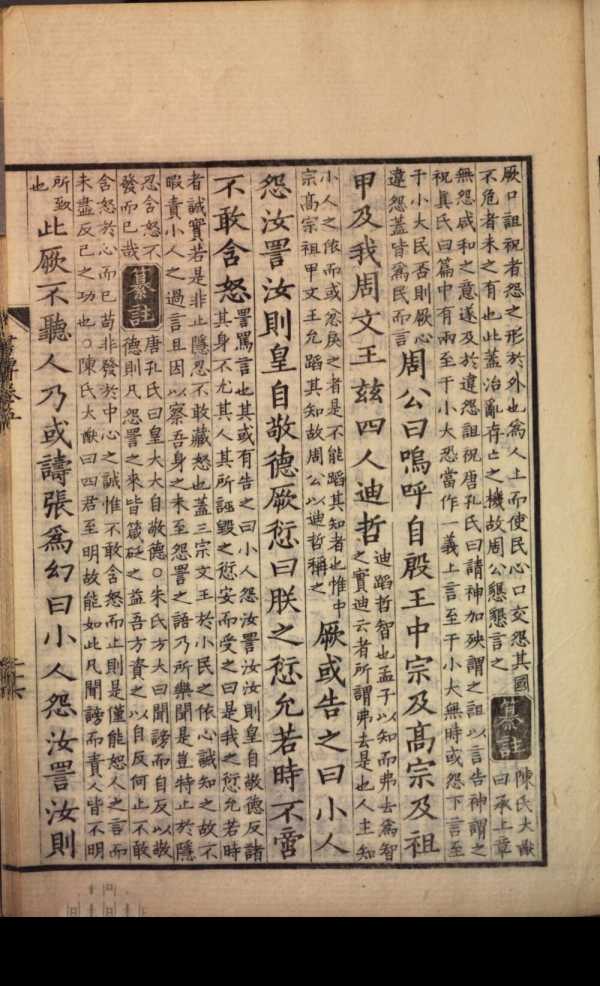 厥口詛祝者怨之形於外也爲人上而使民心口交怨其國
不危者未之有也此蓋治亂存亡之機故周公懇懇言之
纂註
陳氏大猷
曰承上章
無怨咸和之意遂及於違怨詛祝唐孔氏曰請神加殃謂之詛以言告神謂之
祝真氏曰篇中有兩至于小大恐當作一義上言至于小大無時或怨下言至
于小大民否則厥心
違怨蓋皆爲民而言
周公曰嗚呼自殷王中宗及高宗及祖
甲及我周文王兹四人迪哲
迪蹈哲智也孟子以知而弗去爲智
之實迪云者所謂弗去是也人主知
小人之依而或忿戾之者是不能蹈其知者也惟中
宗高宗祖甲文王允蹈其知故周公以迪哲稱之
厥或告之曰小人
怨汝詈汝則皇自敬德厥愆曰朕之愆允若時不啻
不敢含怒
詈罵言也其或有告之曰小人怨汝詈汝汝則皇自敬德反諸
其身不尤其人其所誣毀之愆安而受之曰是我之愆允若時
者誠實若是非止隱忍不敢藏怒也蓋三宗文王於小民之依心誠知之故不
暇責小人之過言且因以察吾身之未至怨詈之語乃所樂聞是豈特止於隱
忍含怒不
發而已哉
纂註
唐孔氏曰皇大大自敬德○朱氏方大曰聞謗而自反以敬
德則凡怨詈之來皆箴砭之益吾方資之以自反何止不敢
含怒於心而已苟非發於中心之誠惟不敢含怒而止則是僅能恕人之言而
未盡反已之功也○陳氏大猷曰四君至明故能如此凡聞謗而責人皆不明
所致
也
此厥不聽人乃或譸張爲幻曰小人怨汝詈汝則